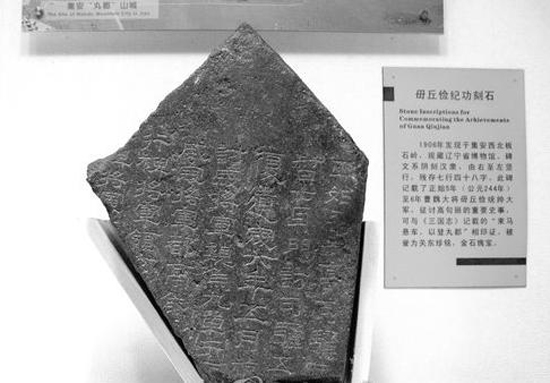 集安“丸都”山城
The Site of Wandu Mountain City in Jian
毌丘俭纪功刻石
Stone Inscriptions for
Commemorating the Achievements
of Guan Qiujian
1906年发现于集安西北板
石岭，现藏辽宁省博物馆，碑
文系阴刻汉隶，由右至左竖
行，残存七行四十八字，此碑
记载了正始5年（公元244年）
至6年曹魏大将毌丘俭统帅大
军，征讨高句丽的重要史事，
可与《三国志》记载的“束马
悬车，以登丸都”相印证，被
誉为关东珍铭，金石瑰宝。
正始三年高句驪
督七牙門討句驪五
復遣寇六年五月旋